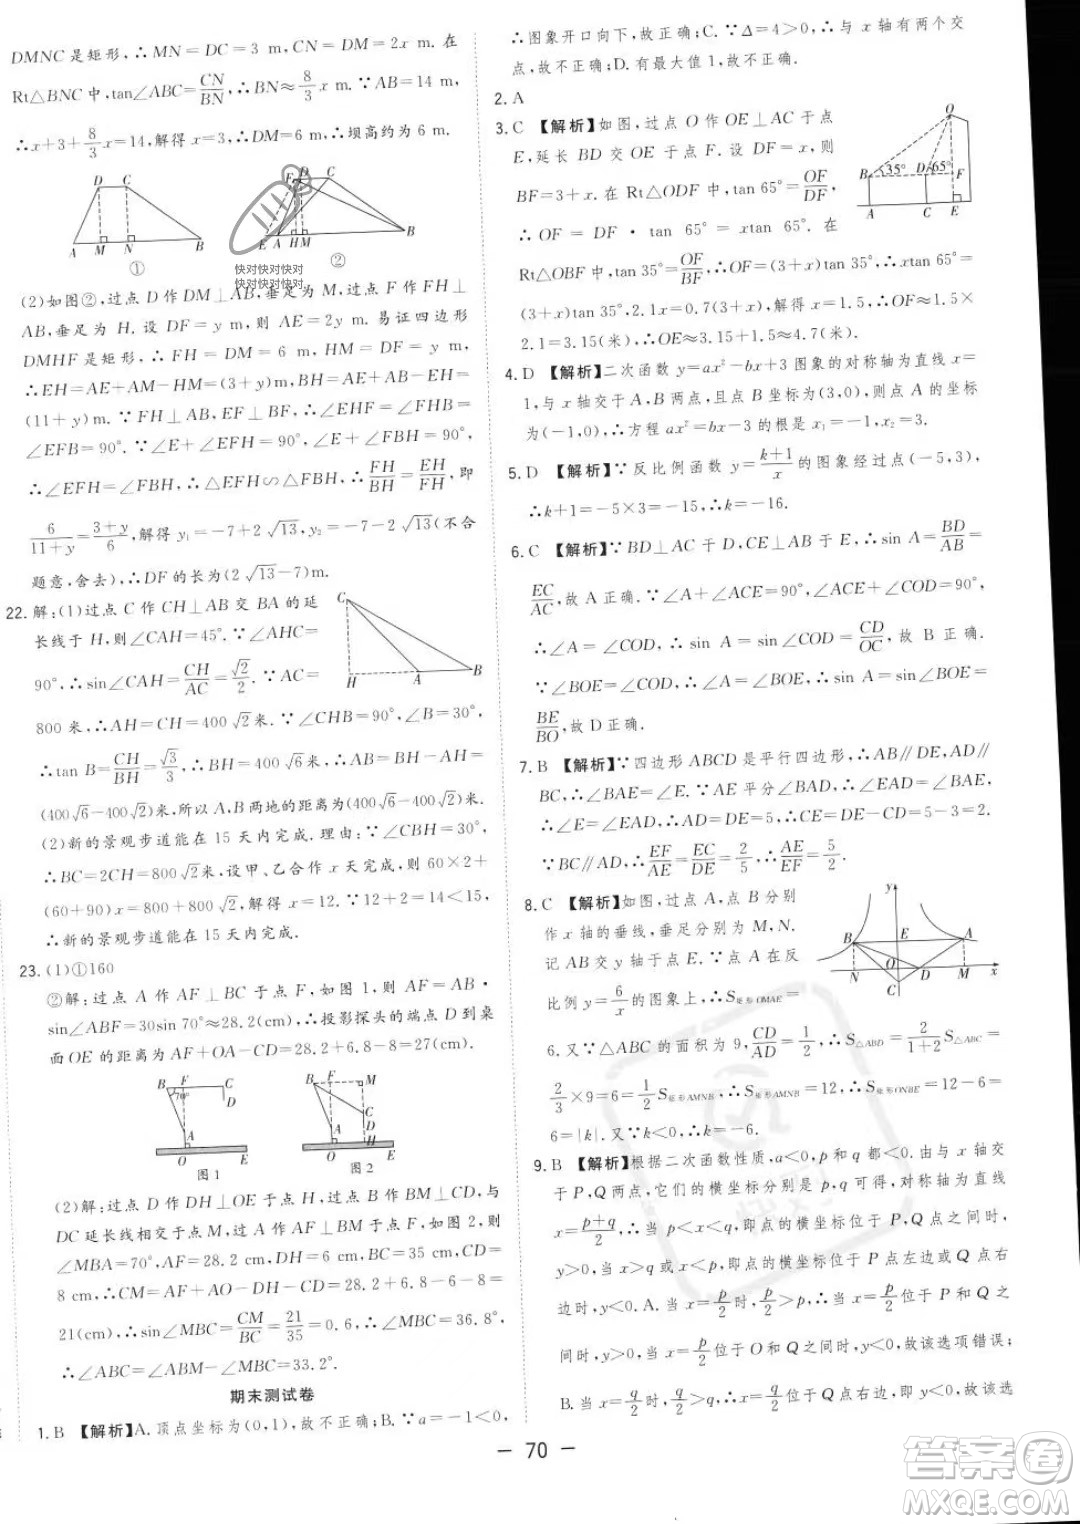 DMNC 是矩形,∴MN=DC=3 m,CN=DM=2x m.在
Rt△BNC 中,tan∠ABC=CN/BN,∴BN≈8/3 x m.∵AB=14 m,
∴x+3+8/3 x=14,解得 x=3,∴DM=6 m,∴坝高约为 6 m.
D C
A M N B
①
F D C
E A H M B
②
快对快对快对
快对快对快对
(2)如图②,过点 D 作 DM⊥AB,垂足为 M,过点 F 作 FH⊥
AB,垂足为 H.设 DF=y m,则 AE=2y m.易证四边形
DMHF 是矩形,∴FH=DM=6 m,HM=DF=y m.
∴EH=AE+AM-HM=(3+y)m,∴BH=AB-AM+HM=
(11+y)m.∵FH⊥AB,EF⊥BF,∴∠EHF=∠FHB=
∠EFB=90°.∵∠E+∠EFH=90°,∠EFH+∠BFH=90°,
∴∠EFH=∠FBH,∴△EFH∽△FBH,∴FH/BH=EH/FH,即
6/(11+y)=(3+y)/6,解得 y₁=-7+2√13,y₂=-7-2√13(不合
题意,舍去),∴DF 的长为(2√13-7)m.
22.解:(1)过点 C 作 CH⊥AB 交 BA 的延
长线于 H,则∠CAH=45°.∵∠AHC=
90°,∴sin∠CAH=CH/AC=√2/2.∵AC=
800 米,∴AH=CH=400√2米.∵∠CHB=90°,∠B=30°,
∴tan B=CH/BH=√3/3,∴BH=400√6米,∴AB=BH-AH=
(400√6-400√2)米,所以 A,B 两地的距离为(400√6-400√2)米.
C
H A B
(2)新的景观步道能在 15 天内完成.理由:∵∠CBH=30°,
∴BC=2CH=800√2米,设甲、乙合作 x 天完成,则 60×2+
(60+90)x=800+800√2,解得 x≈12.∵12+2=14<15,
∴新的景观步道能在 15 天内完成.
23.(1)①160
②解:过点 A 作 AF⊥BC 于点 F,如图 1,AF=AB·
sin∠ABF=30sin 70°≈28.2(cm),∴投影探头的端点 D 到桌
面 OE 的距离为 AF+OA-CD=28.2+6.8-8=27(cm).
B F C
70° D
A
O E
图 1
B F M
C
A D
O H E
图 2
(2)解:过点 D 作 DH⊥OE 于点 H,过点 B 作 BM⊥CD,与
DC 延长线相交于点 M,过点 A 作 AF⊥BM 于点 F,如图 2,则
∠MBA=70°,AF=28.2 cm,DH=6 cm,BC=35 cm,CD=
8 cm,∴CM=AF+AO-DH-CD=28.2+6.8-6-8=
21(cm),∴sin∠MBC=CM/BC=21/35=0.6,∴∠MBC=36.8°,
∴∠ABC=∠ABM-∠MBC=33.2°.
期末测试卷
1.B 【解析】A.顶点坐标为(0,1),故不正确;B.∵a=-1<0,
∴图象开口向下,故正确;C.∵Δ=4>0,∴与 x 轴有两个交
点,故不正确;D.有最大值 1,故不正确.
2.A
3.C 【解析】如图,过点 O 作 OE⊥AC 于点
E,延长 BD 交 OE 于点 F.设 DF=x,则
BF=3+x.在 Rt△ODF 中,tan 65°=OF/DF,
∴OF=DF·tan 65°=xtan 65°.在
Rt△OBF 中,tan 35°=OF/BF,∴OF=(3+x)tan 35°,∴xtan 65°=
(3+x)tan35°,2.1x=0.7(3+x),解得 x=1.5,∴OF≈1.5×
2.1=3.15(米),∴OE≈3.15+1.5≈4.7(米).
O
B 35° D 65° F
A C E
4.D 【解析】二次函数 y=ax²-bx+3 图象的对称轴为直线 x=
1,与 x 轴交于 A,B 两点,且点 B 坐标为(3,0),则点 A 的坐标
为(-1,0),∴方程 ax²=bx-3 的根是 x₁=-1,x₂=3.
5.D 【解析】∵反比例函数 y=(k+1)/x 的图象经过点(-5,3),
∴k+1=-5×3=-15,∴k=-16.
6.C 【解析】∵BD⊥AC 于 D,CE⊥AB 于 E,∴sin A=BD/AB=
EC/AC,故 A 正确.∵∠A+∠ACE=90°,∠ACE+∠COD=90°,
∴∠A=∠COD,∴sin A=sin∠COD=CD/OC,故 B 正确.
∵∠BOE=∠COD,∴∠A=∠BOE,∴sin A=sin∠BOE=
BE/BO,故 D 正确.
7.B 【解析】∵四边形 ABCD 是平行四边形,∴AB∥DE,AD∥
BC,∴∠BAE=∠E.∵AE 平分∠BAD,∴∠EAD=∠BAE,
∴∠E=∠EAD,∴AD=DE=5,∴CE=DE-CD=5-3=2.
∵BC∥AD,∴EF/AE=EC/DE=2/5,∴AE/EF=5/2.
8.C 【解析】如图,过点 A,点 B 分别
作 x 轴的垂线,垂足分别为 M,N.
记 AB 交 y 轴于点 E.∵点 A 在反
比例 y=6/x 的图象上,∴S矩形OMAE=
6.又∵△ABC 的面积为 9,CD/AD=1/2,∴S△ABD=2/(1+2)S△ABC=
2/3×9=6=1/2 S矩形AMNB,∴S矩形AMNB=12,∴S矩形ONBE=12-6=
6=|k|.又∵k<0,∴k=-6.
y
B E A
N O D M x
C
9.B 【解析】根据二次函数性质,a<0,p 和 q 都<0.由与 x 轴交
于 P,Q 两点,它们的横坐标分别是 p,q 可得,对称轴为直线
x=(p+q)/2,∴当 p<x<q,即点的横坐标位于 P,Q 点之间时,
y>0;当 x>q 或 x<p,即点的横坐标位于 P 点左边或 Q 点右
边时,y<0.A.当 x=p/2时,p/2>p,∴当 x=p/2位于 P 和 Q 点之
间时,y>0;当 x=p/2位于 O 和 Q 之间时,y<0,故该选项错误;
B.当 x=p/2时,p/2>p,∴当 x=p/2位于 P 和 Q 点之间时,y>0,
— 70 —
答案圈
MXQE.COM